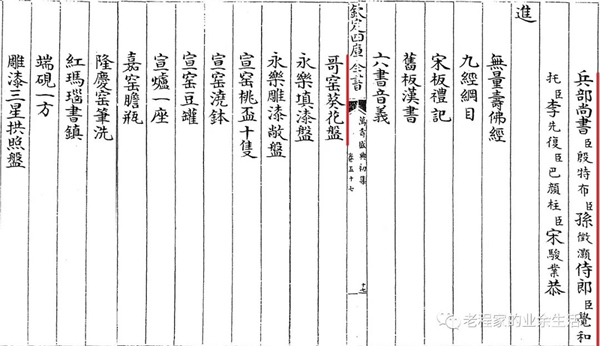 兵部尚書臣殷特布臣孫徵灝侍郎臣覺和
托臣李先復臣巴顏柱臣宋駿業恭
進
無量壽佛經
九經綱目
宋板禮記
舊板漢書
六書音義
欽定四庫全書
萬壽盛典初集
卷五十七
哥窑葵花盤
永樂填漆盤
永樂雕漆敞盤
宣窑桃盃十隻
宣窑澆鉢
宣窑豆罐
宣爐一座
嘉窑膽瓶
隆慶窑筆洗
紅瑪瑙書鎮
端硯一方
雕漆三星拱照盤
老程家的业余生活